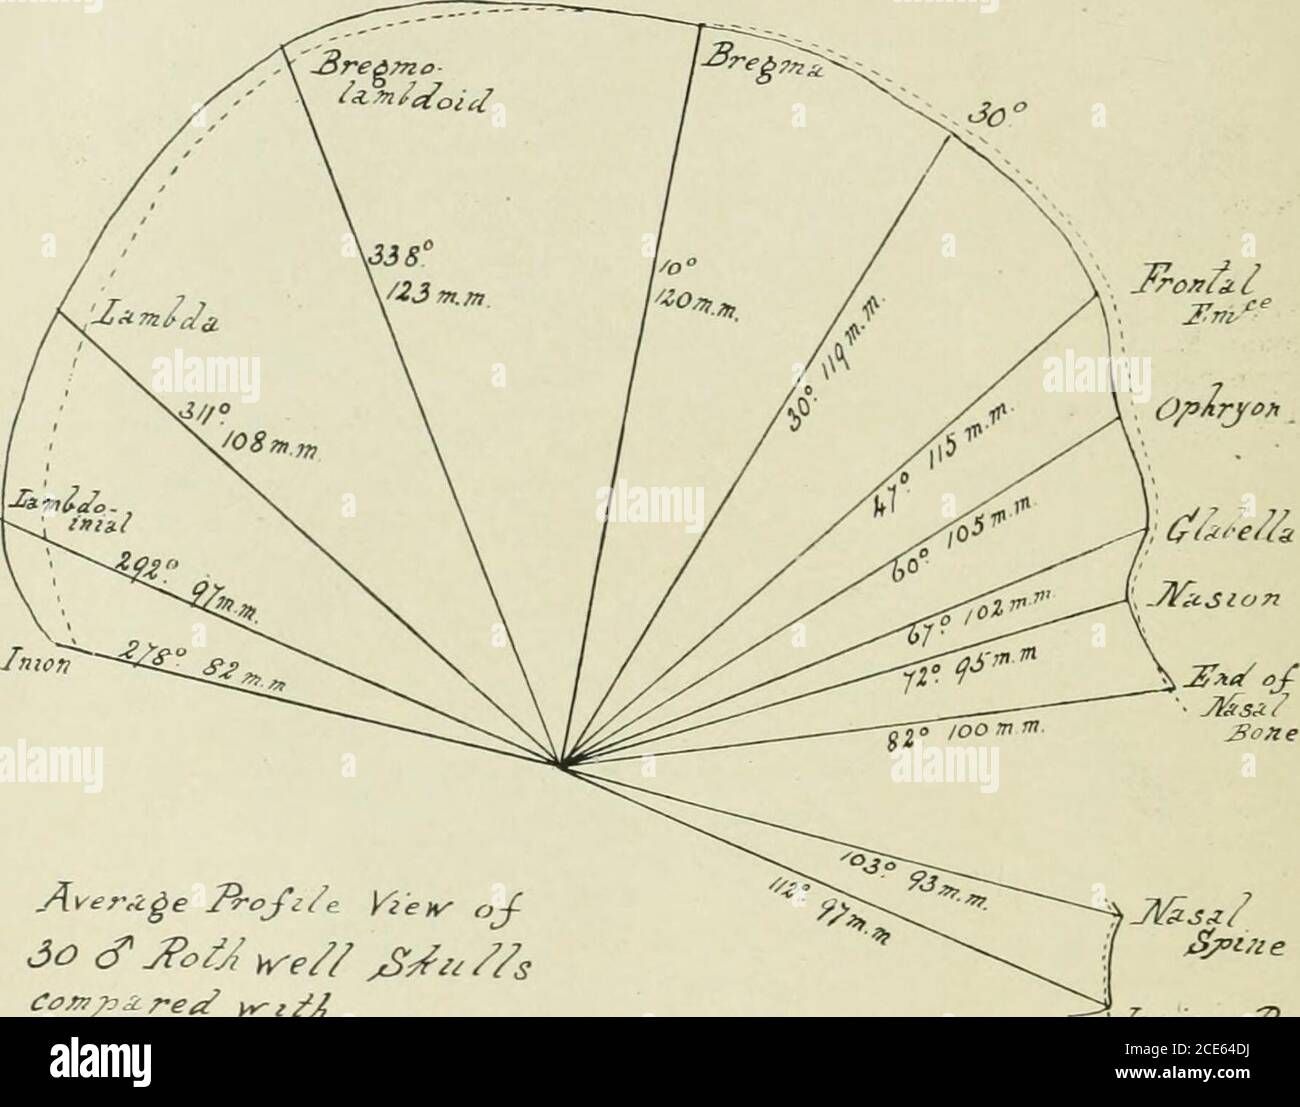 Bregmo-
lambdoid
Bregma
30°
338°
123 m.m.
10°
120 m.m.
30° 119 m.m.
Frontal
Em^ce
Lambda
311°
108 m.m.
47° 115 m.m.
Ophryon
Lambdo-
inial
292° 97 m.m.
60° 105 m.m.
Glabella
67° 102 m.m.
Nasion
Inion
278° 82 m.m
72° 95 m.m
End of
Nasal
Bone
82° 100 m.m.
103° 93 m.m.
112° 97 m.m
Nasal
Spine
Average Profile View of
30 ♂ Rothwell Skulls
compared with
alamy
alamy
alamy
alamy
alamy
a
alamy
Image ID: 2CE64DJ
www.alamy.com